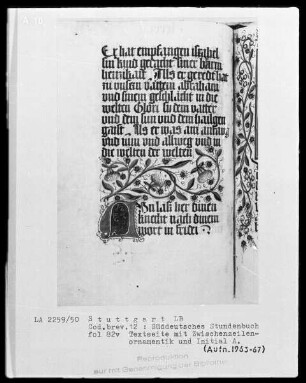 Er hat empfangen israhel
sin kind gedacht siner barm
hertzikait Als er geredt hat
zu unsern vättern abraham
und sinem geschlächt in die
welten Glori sy dem vatter
und dem sun und dem hailgen
gaist Als er was am anfang
und nun und allweg und in
die welten der welten
Nun lass her dinen
knecht nach dinem
wort in frid
LA 2259/50 Stuttgart LB
Cod.brev.12 : Süddeutsches Stundenbuch
fol 82v Textseite mit Zwischenzeilen-
ornamentik und Initial A.
(Aufn. 1963-67)
Reproduktion
nur mit Genehmigung der Bibliothek